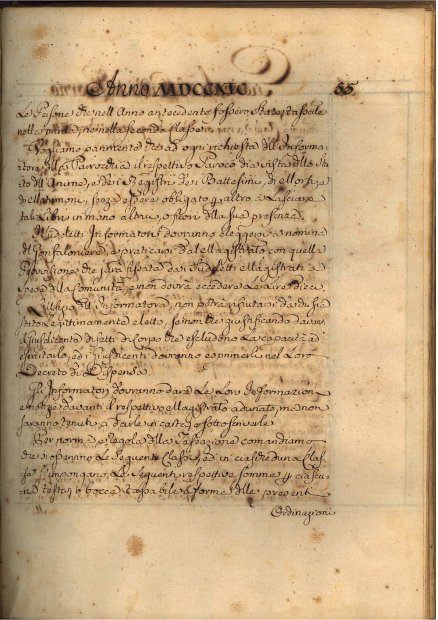 Anno MDCCXIC 55
Le Persone che nell Anno antecedente fossero state tassate
nella prima, o nella seconda Classe.
Vogliamo parimente che ad ogni richiesta dell Informa-
tore della Parrocchia il respettivo Paroco dia vista dello Sta
to dell Anime, e dei Registri dei Battesimi, e dei
senza essere obligato per altro a lasciare
tali Libri in mano altrui, o fuori della sua presenza.
I sudetti Informatori dovranno eleggersi a nomina
del Gonfaloniere, e praticarsi dal Magistrato con quella
Provvisione che sarà fissata dai sudetti Magistrati a
spese della Comunità, e non dovrà eccedere Lire Dieci.
dell Informatore non potrà rifiutarsi da chi sia
stato legittimamente eletto, se non che giustificando davanti
il Giusdicente difetti di Corpo che escludono la capacità ad
esercitarlo, ed i Giusdicenti dovranno esprimerli nel Loro
Decreto di Dispensa.
Gli Informatori dovranno dare le Loro Informazioni
e notizie davanti il respettivo Magistrato adunato, ma non
saranno tenuti a darle in carta, o sottoscriverle.
Per norma, e regola della Tassazione comandiamo
che si osservino le seguenti Classi, ed in ciascheduna Clas-
se s' impongano le seguenti respettive somme per ciascu-
na testa, o bocca tassabile a forma delle presenti
Ordinazioni